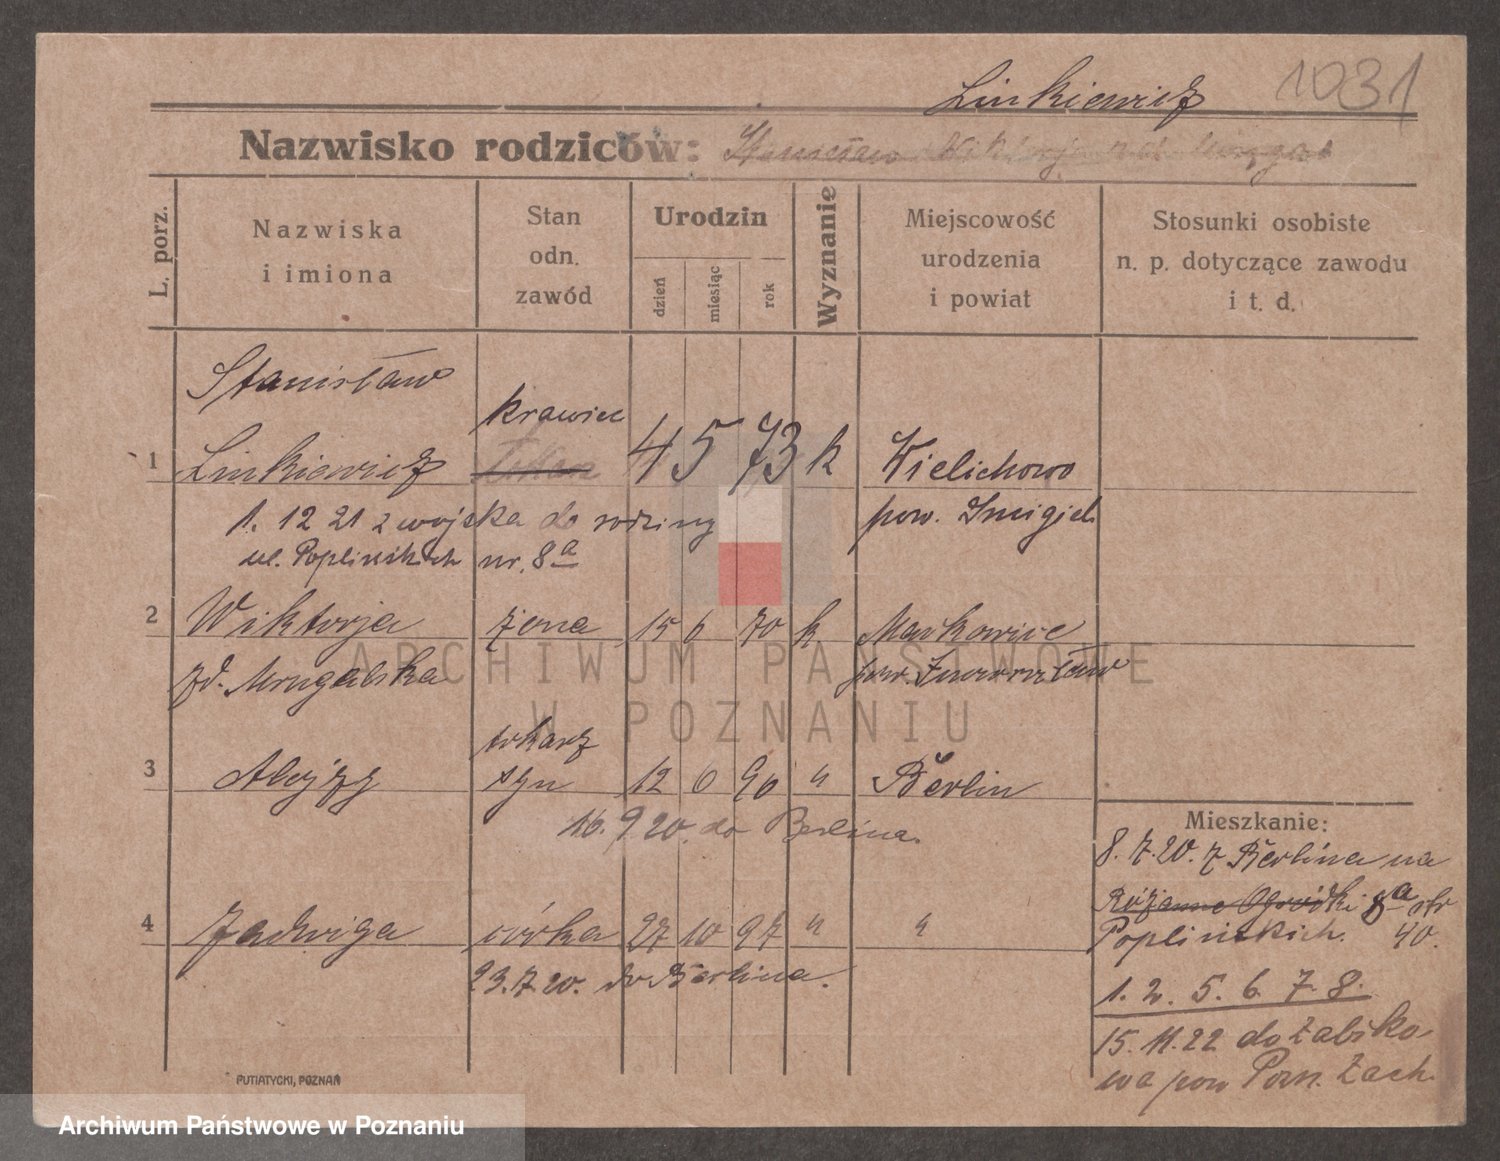 Linkiewicz 1031
Nazwisko rodziców: Stanisław
L. porz.
Nazwiska i imiona
Stan odn. zawód
Urodzin
dzień miesiąc rok
Wyznanie
Miejscowość urodzenia i powiat
Stosunki osobiste n. p. dotyczące zawodu i t. d.
Stanisław
krawiec
1 Linkiewicz 4 5 73 k Wielichowo
1. 12 21 z wojska do rodziny pow. Śmigiel
ul. Poplinskich nr. 8a
2 Wiktorja żona 15 6 70 k Markowice
zd. Mrugalska pow. Inowrocław
ARCHIWUM PAŃSTWOWE
W POZNANIU
tokarz
3 Alojzy syn 12 6 96 " Berlin
16. 9 20. do Berlina.
Mieszkanie:
8. 7. 20. z Berlina na
Różanne Ogródki 8a ptr
4 Jadwiga córka 27 10 97 " "
Poplinskich. 40.
23. 7. 20. do Berlina.
1. 2. 5. 6. 7. 8.
15. 11. 22 do Żabiko-
wa pow Pozn. Zach.
PUTIATYCKI, POZNAŃ
Archiwum Państwowe w Poznaniu